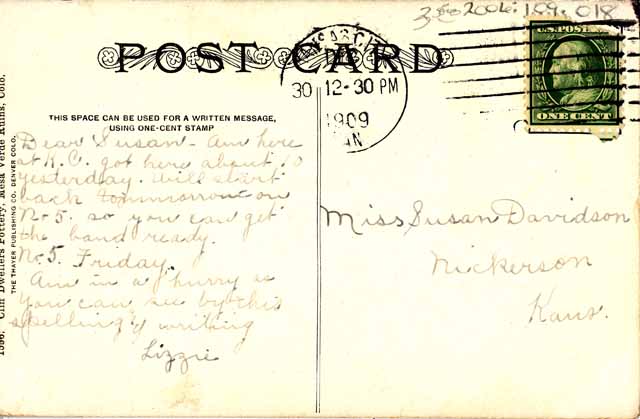 3 2006.109.018
POST CARD
KANSAS CITY
DEC
30 12-30 PM
1909
KAN
U.S. POST
ONE CENT
THIS SPACE CAN BE USED FOR A WRITTEN MESSAGE,
USING ONE-CENT STAMP
Dear Susan - Am here
at K.C. got here about 10
yesterday. Will start
back tommorrow on
No 5. so you can get
the band ready.
No. 5. Friday.
Am in a hurry as
you can see by this
spelling & writing
Lizzie
Miss Susan Davidson
Nickerson
Kans.
1096. Cliff Dwellers Pottery, Mesa Verde Ruins, Colo.
THE THAYER PUBLISHING CO. DENVER COLO.